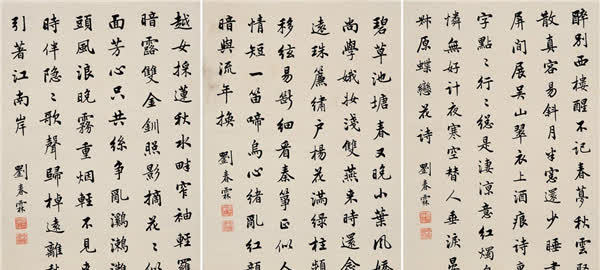 醉别西樓醒不記春夢秋雲
散真容易斜月半窗還少睡畫
屏間展吳山翠衣上酒痕詩裏
字點〻行〻總是淒涼意紅燭
憐無好計夜寒空替人垂淚晏
叔原蝶戀花詩 劉春霖
碧草池塘春又晚小葉風嬌
尚學娥妝淺雙燕來時還念
遠珠簾繡户楊花滿綠柱頻
移絃易斷細看秦箏正似人
情短一笛啼烏心緒亂紅顏
暗與流年換 劉春霖
越女採蓮秋水畔窄袖輕羅
暗露雙金釧照影摘花〻似
面芳心只共絲爭亂鸂鶒灘
頭風浪晚霧重烟輕不見來
時伴隱〻歌聲歸棹遠離愁
引著江南岸 劉春霖